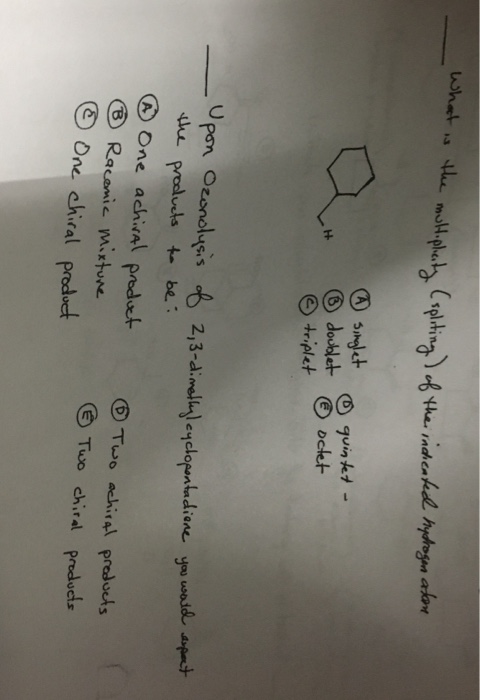 What is the multiplicity (spliting) of the indicated hydrogen atom
H
A singlet D quintet -
B doublet E octet
C triplet
Upon Ozonolysis of 2,3-dimethylcyclopentadiene you would expect
the products to be:
A One achiral product D Two achiral products
B Racemic Mixture E Two chiral products
C One chiral product